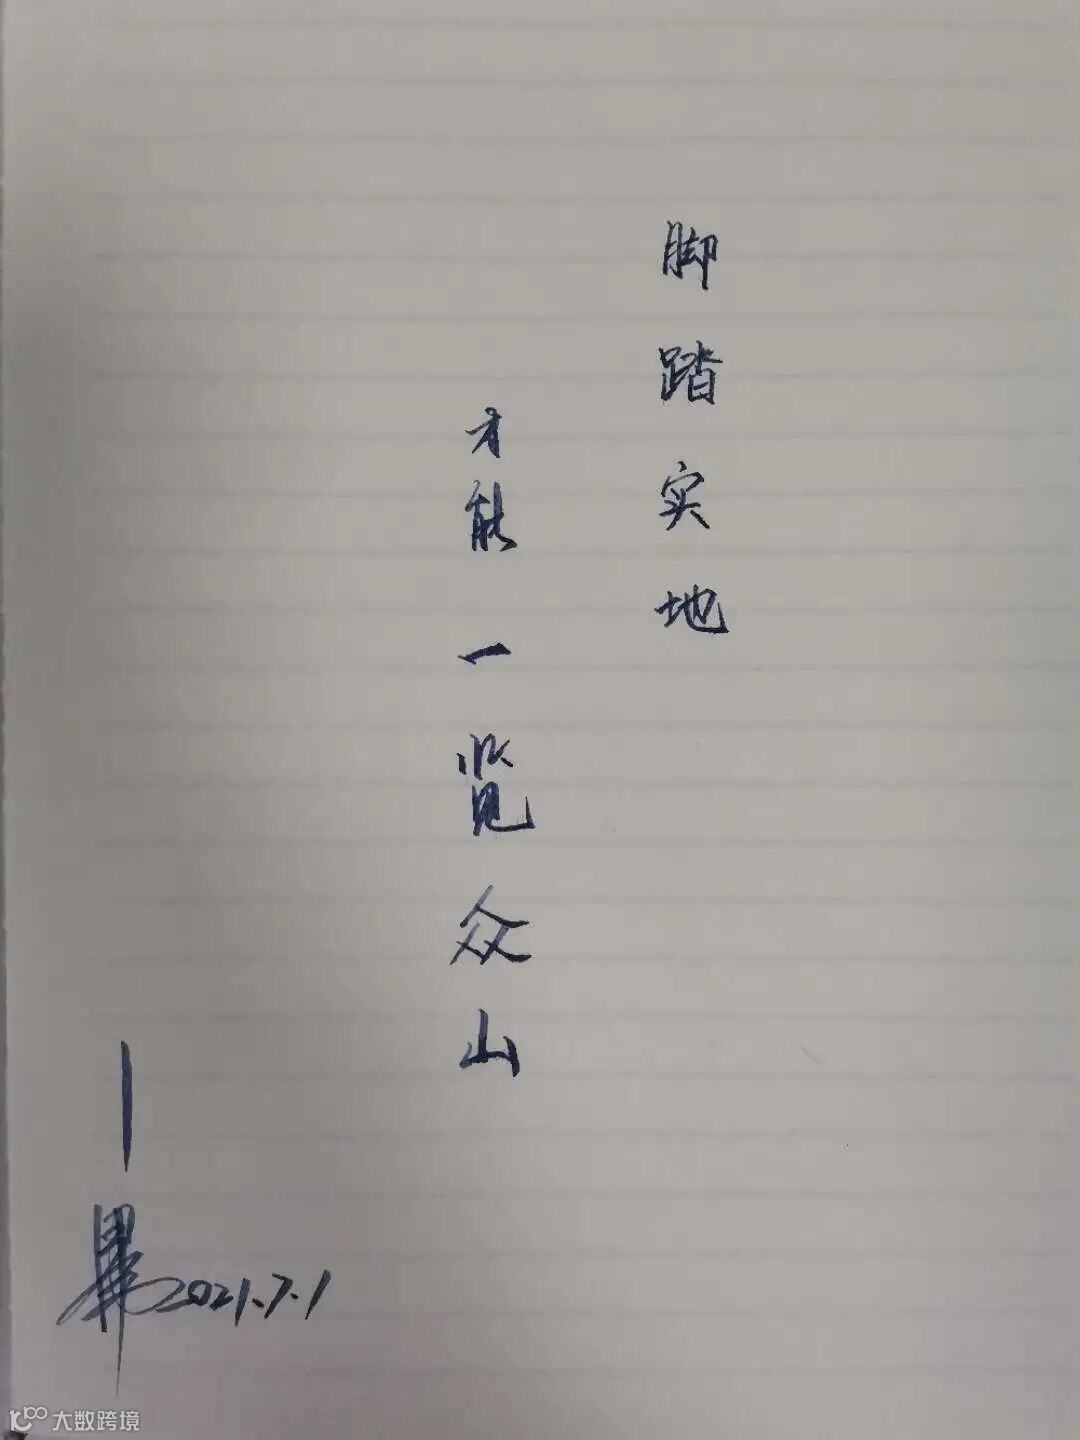 脚踏实地
才能一览众山
2021.7.1
大数跨境